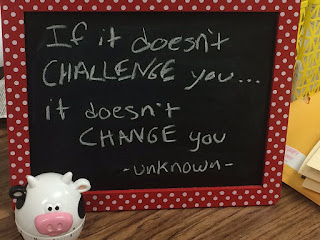 If it doesn't
CHALLENGE you...
it doesn't
CHANGE you
-unknown-